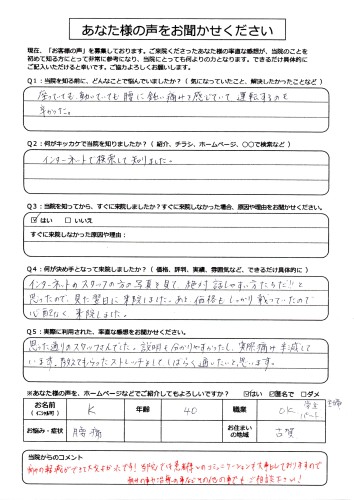 あなた様の声をお聞かせください
現在、「お客様の声」を募集しております。ご来院くださったあなた様の率直な感想が、当院のことを
初めて知る方にとって非常に参考になり、当院にとっても何よりの力となります。できるだけ具体的に
ご記入いただけると幸いです。ご協力よろしくお願いします。
Q1：当院を知る前に、どんなことで悩んでいましたか？（ 気になっていたこと、解決したかったことなど ）
座ってても動いてても腰に鈍い痛みを感じていて運転するのも
辛かった。
Q2：何がキッカケで当院を知りましたか？（ 紹介、チラシ、ホームページ、○○で検索など ）
インターネットで検索して知りました。
Q3：当院を知ってから、すぐに来院しましたか？すぐに来院しなかった場合、原因や理由をお聞かせください。
☑はい □いいえ
すぐに来院しなかった原因や理由：
Q4：何が決め手となって来院しましたか？（ 価格、評判、実績、雰囲気など、できるだけ具体的に ）
インターネットのスタッフの方の写真を見て、絶対話しやすい方たちだ!!と
思ったので、見た翌日に来院しました。あと価格もしっかり載っていたので
心配なく来院しました。
Q5：実際に利用された、率直な感想をお聞かせください。
思った通りのスタッフさんでした。説明も分かりやすかったし、実際痛み半減して
います。教えてもらったストレッチをして、しばらく通いたいと思います。
※あなた様の声を、ホームページなどでご紹介してもよろしいですか？ ☑はい ☑匿名で □ダメ
お名前
(イニシャル可)
K
年齢
40
職業
OK
主婦
パート
お悩み・症状
腰痛
お住まい
の地域
古賀
当院からのコメント